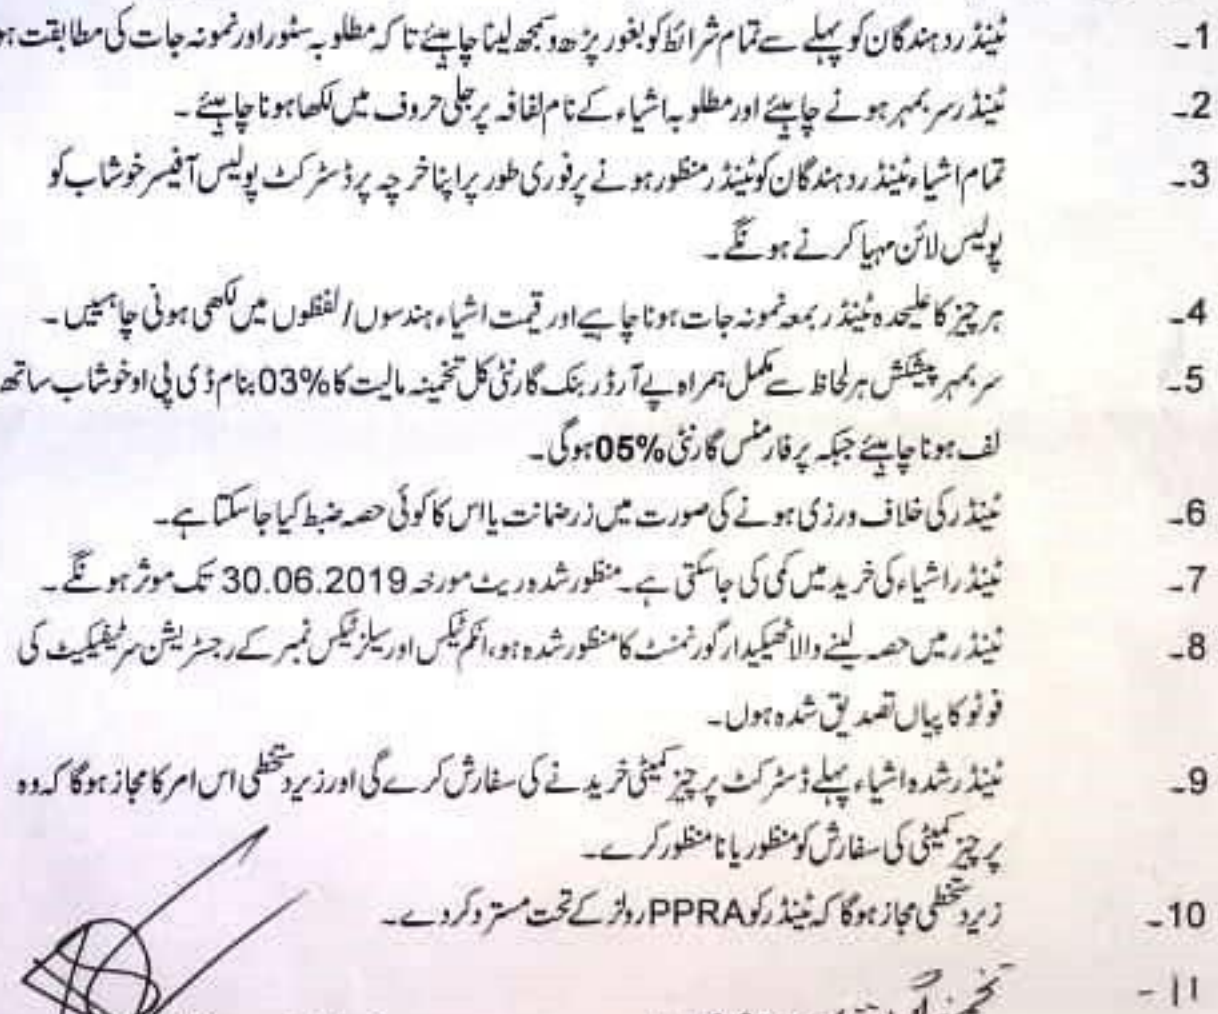 1۔ ٹینڈر دہندگان کو پہلے سے تمام شرائط کو بغور پڑھ وسمجھ لینا چاہیئے تا کہ مطلوبہ سٹور اور نمونہ جات کی مطابقت ہو
2۔ ٹینڈر سر بمہر ہونے چاہیئے اور مطلوبہ اشیاء کے نام لفافہ پر جلی حروف میں لکھا ہونا چاہیئے ۔
3۔ تمام اشیاء ٹینڈر دہندگان کو ٹینڈر منظور ہونے پر فوری طور پر اپنا خرچہ پر ڈسٹرکٹ پولیس آفیسر خوشاب کو
پولیس لائن مہیا کرنے ہونگے ۔
4۔ ہر چیز کا علیحدہ ٹینڈر بمعہ نمونہ جات ہونا چاہیے اور قیمت اشیاء ہندسوں / لفظوں میں لکھی ہونی چاہیئیں ۔
5۔ سر بمہر پیشکش ہر لحاظ سے مکمل ہمراہ پے آرڈر بنک گارنٹی کل تخمینہ مالیت کا 03% بنام ڈی پی او خوشاب ساتھ
لف ہونا چاہیئے جبکہ پرفارمنس گارنٹی 05% ہوگی۔
6۔ ٹینڈر کی خلاف ورزی ہونے کی صورت میں زرضمانت یا اس کا کوئی حصہ ضبط کیا جا سکتا ہے۔
7۔ ٹینڈر اشیاء کی خرید میں کمی کی جاسکتی ہے۔ منظور شدہ ریٹ مورخہ 30.06.2019 تک موثر ہونگے ۔
8۔ ٹینڈر میں حصہ لینے والا ٹھیکیدار گورنمنٹ کا منظور شدہ ہو، انکم ٹیکس اور سیلز ٹیکس نمبر کے رجسٹریشن سرٹیفیکیٹ کی
فوٹو کاپیاں تصدیق شدہ ہوں۔
9۔ ٹینڈر شدہ اشیاء پہلے ڈسٹرکٹ پرچیز کمیٹی خریدنے کی سفارش کرے گی اور زیر دستخطی اس امر کا مجاز ہوگا کہ وہ
پرچیز کمیٹی کی سفارش کو منظور یا نا منظور کرے۔
10۔ زیر دستخطی مجاز ہوگا کہ ٹینڈر کو PPRA رولز کے تحت مسترد کردے۔
11 -